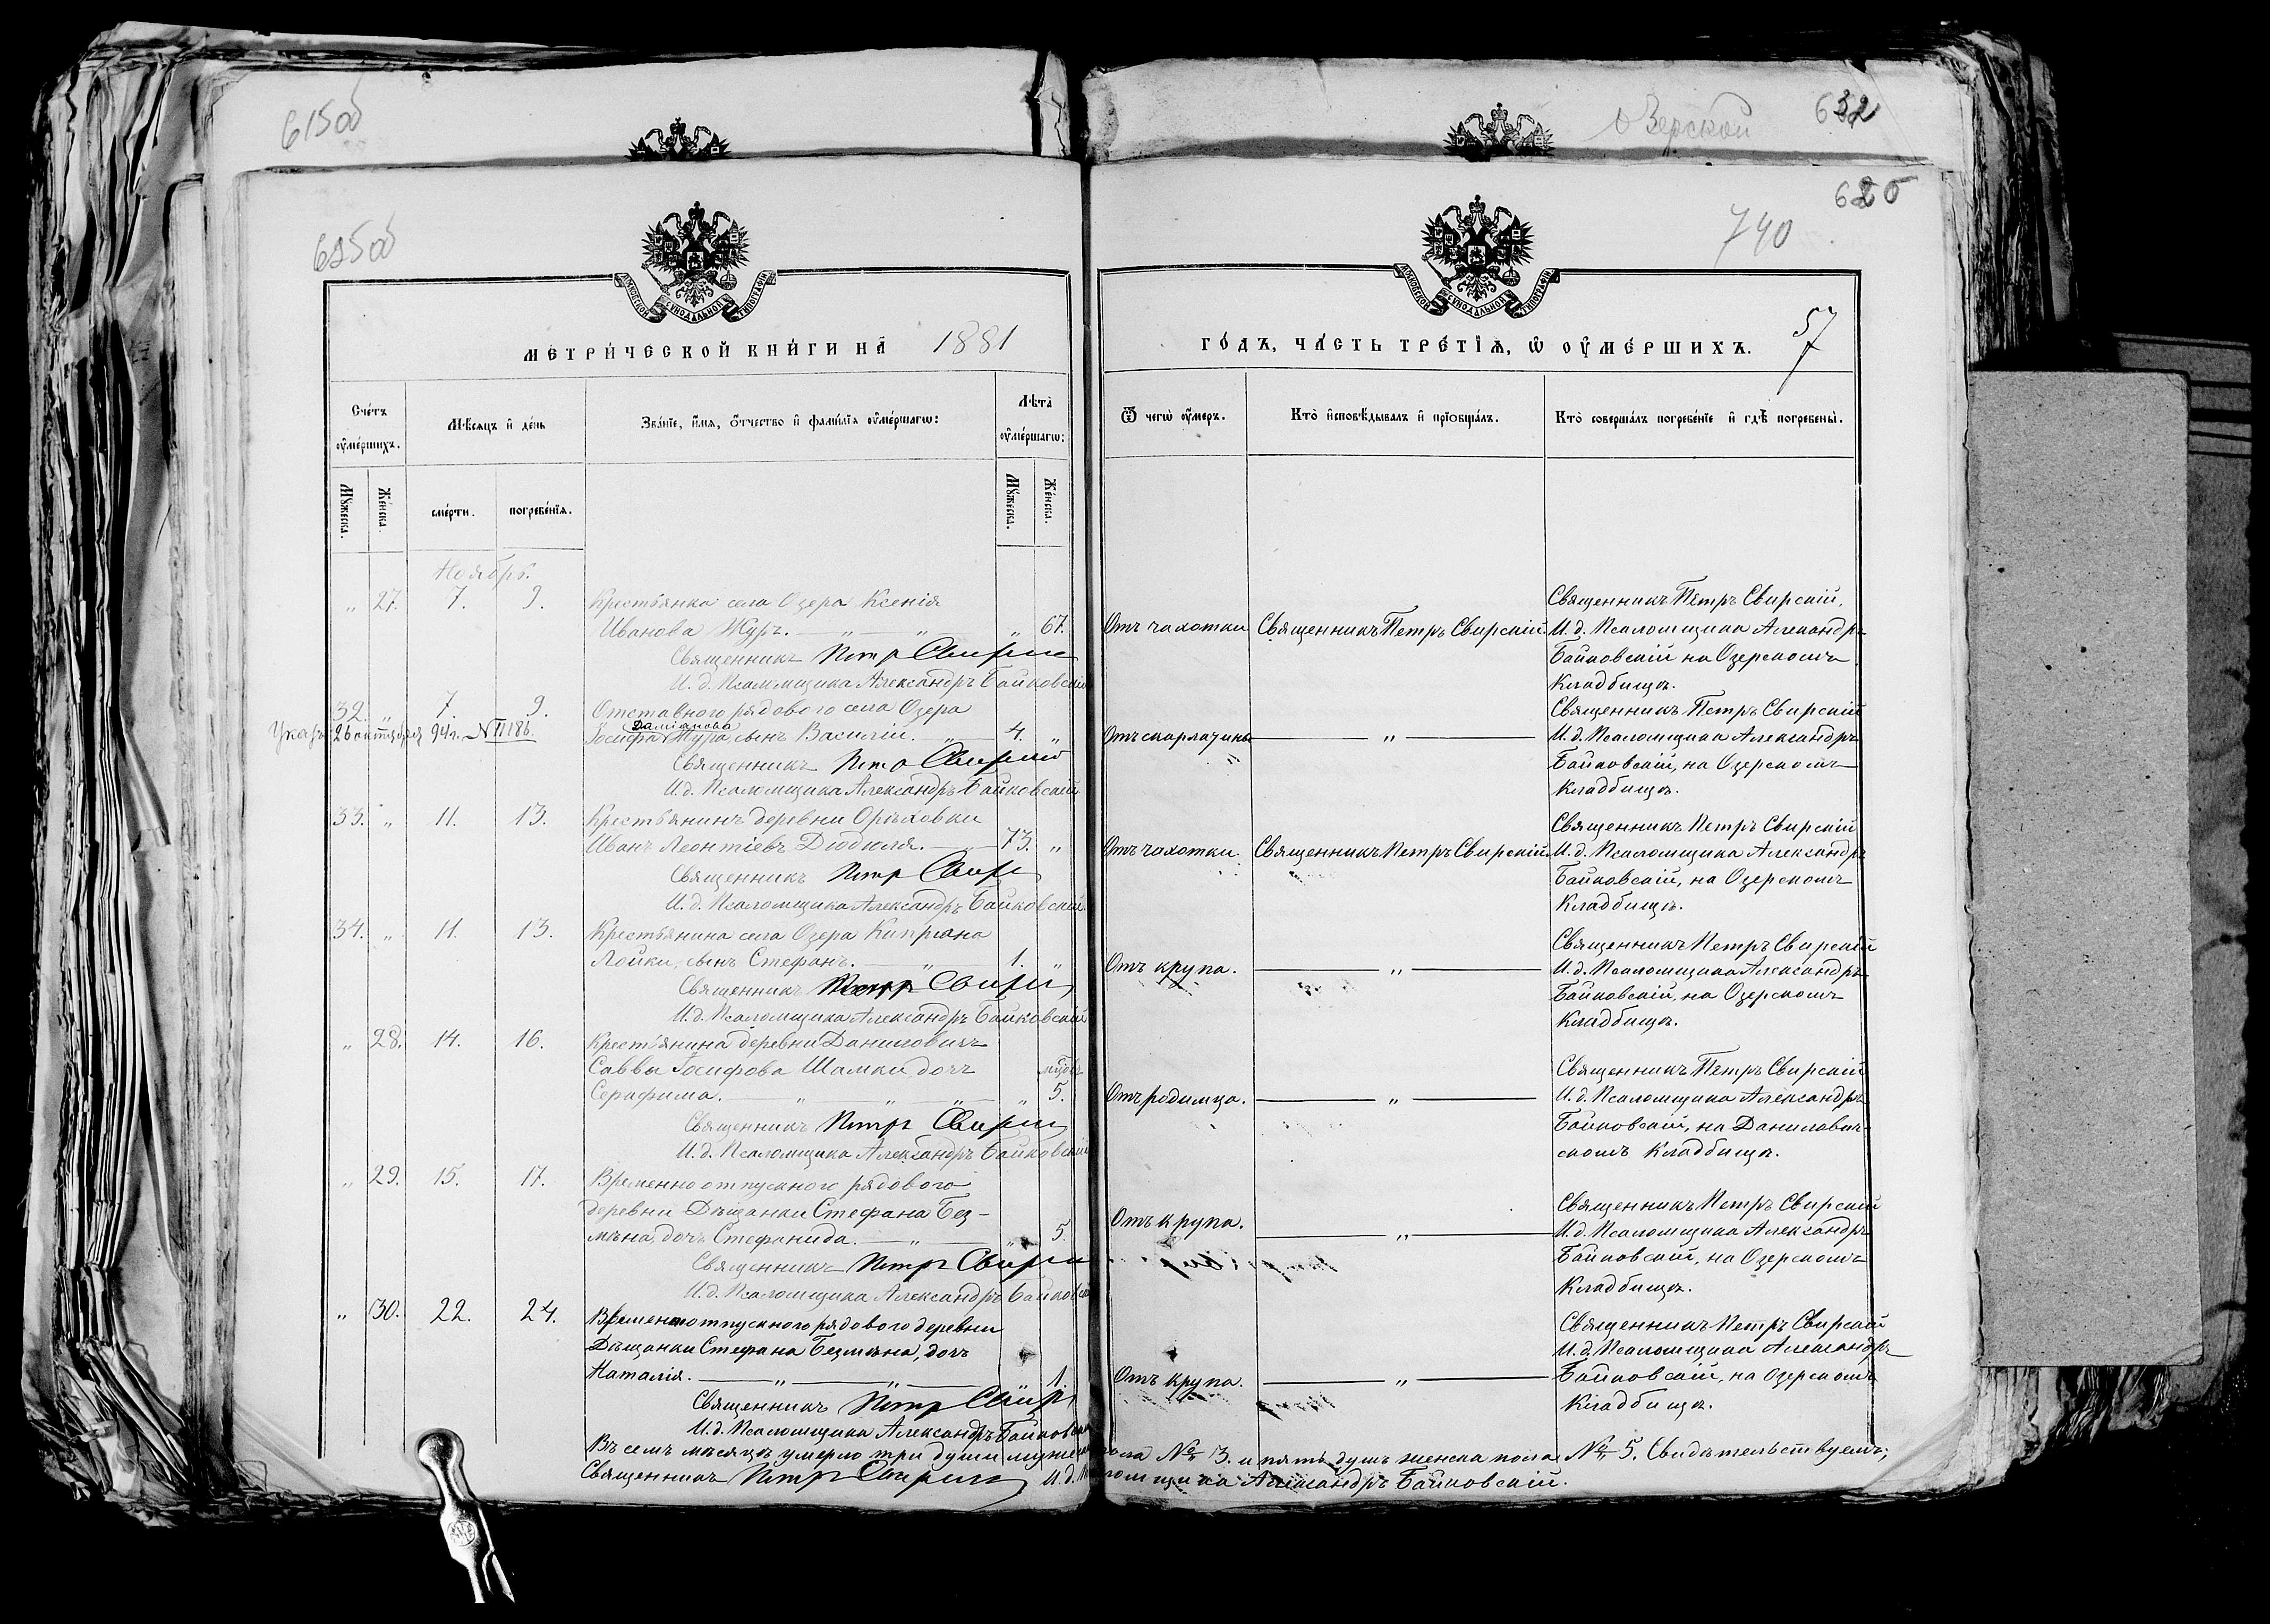 615об
Озерской
632
625об
625
740
57
МОСКОВСКОЙ СѴНОДАЛЬНОЙ ТИПОГРАФІИ
МОСКОВСКОЙ СѴНОДАЛЬНОЙ ТИПОГРАФІИ
МЕТРИ́ЧЕСКОЙ КНИ́ГИ НА̀ 1881
ГО́ДЪ, ЧА́СТЬ ТРЕ́ТІѦ, Ѡ҆ ОУ҆МЕ́РШИХЪ.
Сче́тъ оу҆ме́ршихъ.
Мѣ́сѧцъ и҆ де́нь
Зва́нїе, и҆́мѧ, ѻ҆́тчество и҆ фами́лїѧ оу҆ме́ршагѡ:
Лѣ́та оу҆ме́ршагѡ:
Ѿ чегѡ̀ оу҆́меръ.
Кто̀ и҆сповѣ́дывалъ и҆ прїѡбща́лъ.
Кто̀ соверша́лъ погребе́нїе и҆ гдѣ̀ погребены̀.
Мꙋ́жеска.
Же́нска.
сме́рти.
погребе́нїѧ.
Мꙋ́жеска.
Же́нска.
Ноябрь.
„ 27. 7. 9. Крестьянка села Озера Ксенія
Иванова Журъ. — „ — „ „ 67.
Священникъ Петръ Свирскій
И. д. Псаломщика Александръ Байковскій
Отъ чахотки
Священникъ Петръ Свирскій.
Священникъ Петръ Свирскій,
И. д. Псаломщика Александръ
Байковскій на Озерскомъ
Кладбищѣ.
32. „ 7. 9. Отставного рядового села Озера
Указъ 26 октября 94 г. № 11186.
Даміанова
Іосифа Жура, сынъ Василій. — „ — 4. „
Священникъ Петръ Свирскій
И. д. Псаломщика Александръ Байковскій
Отъ скарлатины
— „ —
Священникъ Петръ Свирскій
И. д. Псаломщика Александръ
Байковскій, на Озерскомъ
Кладбищѣ.
33. „ 11. 13. Крестьянинъ деревни Орѣховки
Иванъ Леонтіевъ Дюдюля. — 73. „
Священникъ Петръ Свирскій
И. д. Псаломщика Александръ Байковскій.
Отъ чахотки.
Священникъ Петръ Свирскій.
Священникъ Петръ Свирскій
И. д. Псаломщика Александръ
Байковскій, на Озерскомъ
Кладбищѣ.
34. „ 11. 13. Крестьянина села Озера Кипріана
Лойки, сынъ Стефанъ. — „ — 1. „
Священникъ Петръ Свирскій
И. д. Псаломщика Александръ Байковскій
Отъ крупа.
— „ —
Священникъ Петръ Свирскій
И. д. Псаломщика Александръ
Байковскій, на Озерскомъ
Кладбищѣ.
„ 28. 14. 16. Крестьянина деревни Даниловичъ
Саввы Іосифова Шамки дочь
Серафима. — „ — „ — „ — „ 5.
Священникъ Петръ Свирскій
И. д. Псаломщика Александръ Байковскій
Отъ родимца.
— „ —
Священникъ Петръ Свирскій
И. д. Псаломщика Александръ
Байковскій, на Данилович-
скомъ Кладбищѣ.
„ 29. 15. 17. Временно отпускного рядового
деревни Дѣщанки Стефана Без-
мѣна, дочь Стефанида. — „ — „ 5.
Священникъ Петръ Свирскій
И. д. Псаломщика Александръ Байковскій
Отъ крупа.
— „ —
Священникъ Петръ Свирскій
И. д. Псаломщика Александръ
Байковскій, на Озерскомъ
Кладбищѣ.
„ 30. 22. 24. Временно отпускного рядового деревни
Дѣщанки Стефана Безмѣна, дочь
Наталія. — „ — „ — „ 1.
Священникъ Петръ Свирскій
И. д. Псаломщика Александръ Байковскій
Отъ крупа.
— „ —
Священникъ Петръ Свирскій
И. д. Псаломщика Александръ
Байковскій, на Озерскомъ
Кладбищѣ.
Въ семъ мѣсяцѣ умерло три души мужеска пола № 3. и пять душъ женска пола № 5. Свидѣтельствуемъ;
Священникъ Петръ Свирскій И. д. Псаломщика Александръ Байковскій.